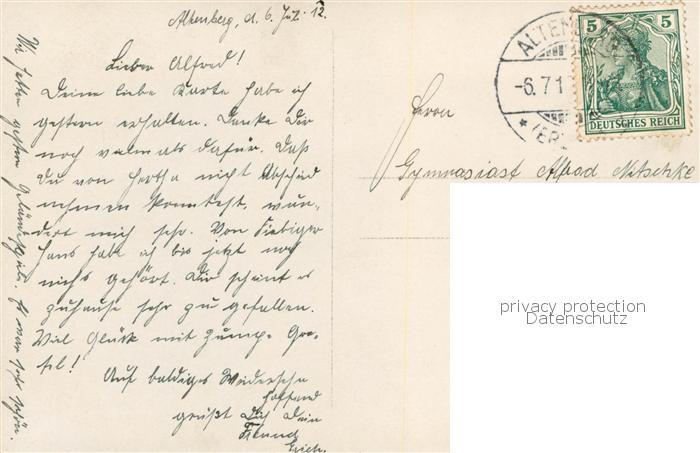 Altenberg, d. 6. Juli 12.
Lieber Alfred!
Deine liebe Karte habe ich
gestern erhalten. Danke Dir
noch vielmals dafür. Daß
Du von Hertha nicht Abschied
nehmen konntest, wun-
dert mich sehr. Von Fiebiger
Hans hab ich bis jetzt noch
nichts gehört. Dir scheint es
zuhause sehr zu gefallen.
Viel Glück mit
Auf baldiges Wiedersehn
hoffend
grüßt Dich Dein
Freund
Erich.
Wir hatten gestern Es war sehr schön.
ALTENB
-6.7.1
* (ER
5 5
DEUTSCHES REICH
Herrn
Gymnasiast Alfred Nitschke
privacy protection
Datenschutz